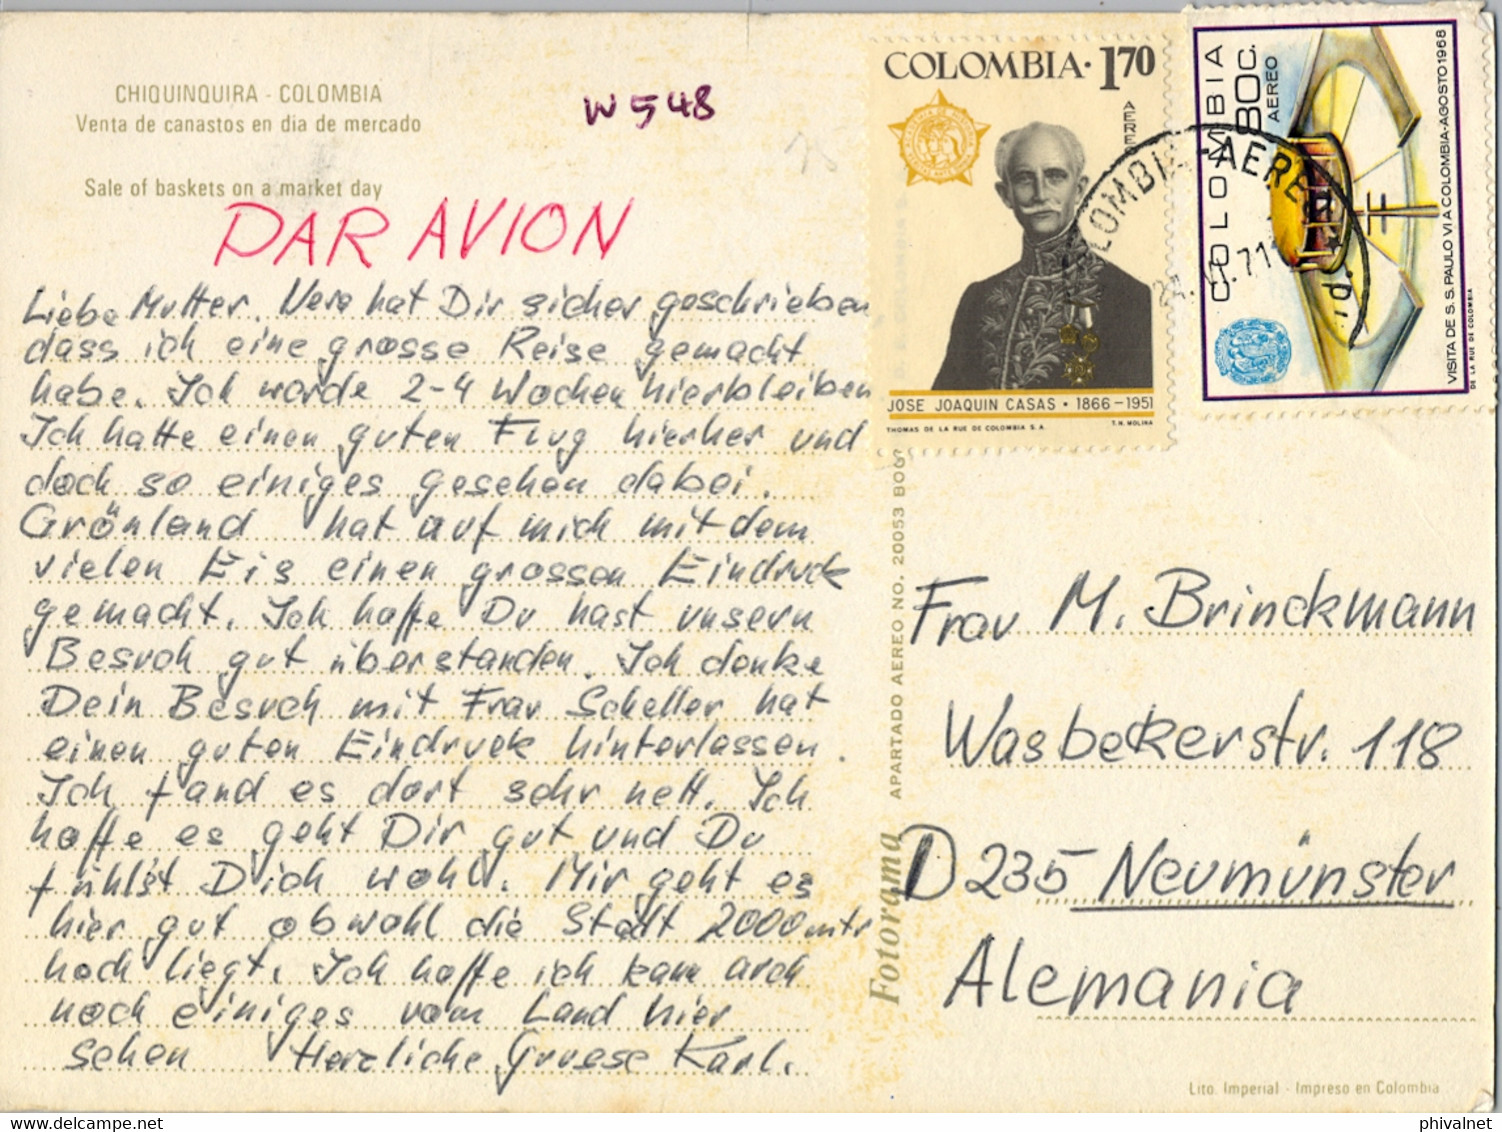 CHIQUINQUIRA - COLOMBIA
Venta de canastos en dia de mercado
Sale of baskets on a market day
W 548
PAR AVION
Liebe Mutter. Vera hat Dir sicher geschrieben
dass ich eine grosse Reise gemacht
habe. Ich werde 2-4 Wochen hierbleiben
Ich hatte einen guten Flug hierher und
doch so einiges gesehen dabei.
Grönland hat auf mich mit dem
vielen Eis einen grossen Eindruck
gemacht. Ich hoffe Du hast unsern
Besuch gut überstanden. Ich denke
Dein Besuch mit Frau Scheller hat
einen guten Eindruck hinterlassen.
Ich fand es dort sehr nett. Ich
hoffe es geht Dir gut und Du
fühlst Dich wohl. Mir geht es
hier gut obwohl die Stadt 2000 mtr
hoch liegt. Ich hoffe ich kann auch
noch einiges vom Land hier
sehen Herzliche Gruesse Karl.
COLOMBIA · 1.70
AEREO
JOSE JOAQUIN CASAS · 1866-1951
THOMAS DE LA RUE DE COLOMBIA S. A. T. N. MOLINA
COLOMBIA 80c.
AEREO
VISITA DE S. S. PAULO VI A COLOMBIA-AGOSTO 1968
DE LA RUE DE COLOMBIA
Fotorama APARTADO AEREO NO. 20053 BOG
Frau M. Brinckmann
Wasbekerstr. 118
D 235 Neumünster
Alemania
Lito. Imperial - Impreso en Colombia
phivalnet